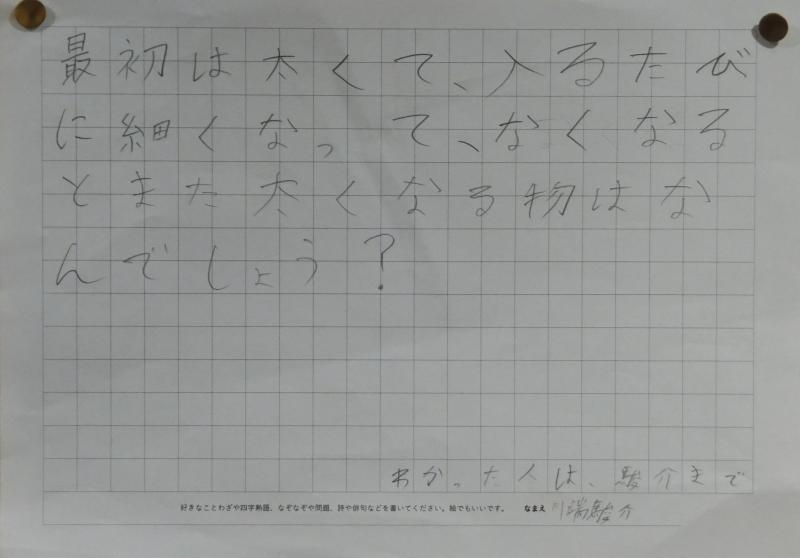 最初は太くて、入るたび
に細くなって、なくなる
とまた太くなる物はな
んでしょう?
わかった人は、駿介まで
好きなことわざや四字熟語、なぞなぞや問題、詩や俳句などを書いてください。絵でもいいです。 なまえ 川端駿介